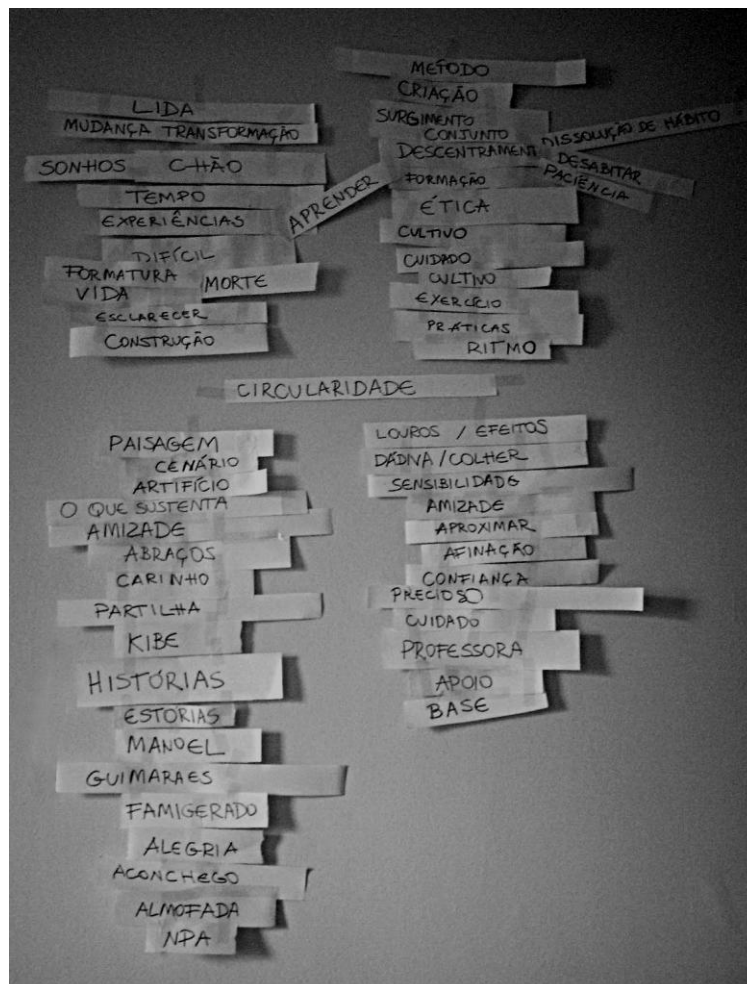 LIDA
MUDANÇA TRANSFORMAÇÃO
SONHOS CHÃO
TEMPO
EXPERIÊNCIAS
DIFÍCIL
FORMATURA
VIDA
MORTE
ESCLARECER
CONSTRUÇÃO
APRENDER
METODO
CRIAÇÃO
SURGIMENTO
CONJUNTO
DESCENTRAMENT
DISSOLUÇÃO DE HÁBITO
DESABITAR
PACIÊNCIA
FORMAÇÃO
ÉTICA
CULTIVO
CUIDADO
CULTIVO
EXERCÍCIO
PRÁTICAS
RITMO
CIRCULARIDADE
PAISAGEM
CENÁRIO
ARTIFÍCIO
O QUE SUSTENTA
AMIZADE
ABRAÇOS
CARINHO
PARTILHA
KIBE
HISTÓRIAS
ESTÓRIAS
MANOEL
GUIMARAES
FAMIGERADO
ALEGRIA
ACONCHEGO
ALMOFADA
NPA
LOUROS / EFEITOS
DÁDIVA / COLHER
SENSIBILIDADE
AMIZADE
APROXIMAR
AFINAÇÃO
CONFIANÇA
PRECIOSO
CUIDADO
PROFESSORA
APOIO
BASE